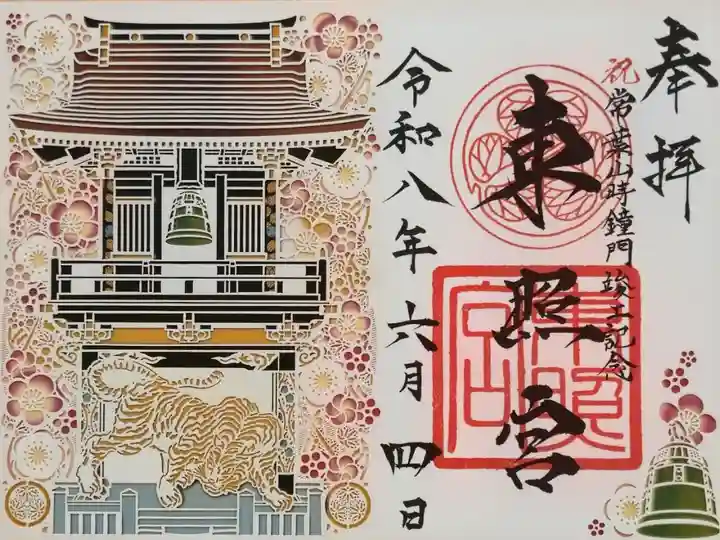 奉拝
祝 常葉山時鐘門竣工記念
東照宮
東照宮
令和八年六月四日